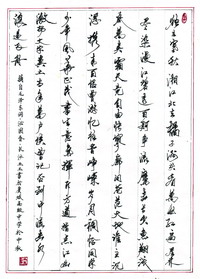 独立寒秋湘江北去橘子洲头看万山红遍层林
尽染漫江碧透百舸争流鹰击长空鱼翔浅
底万类霜天竞自由怅寥廓问苍茫大地谁主沉
浮携来百侣曾游忆往昔峥嵘岁月稠恰同学
少年风华正茂书生意气挥斥方遒指点江山
激扬文字粪土当年万户侯曾记否到中流击水
浪遏飞舟
摘自毛泽东词沁园春长沙